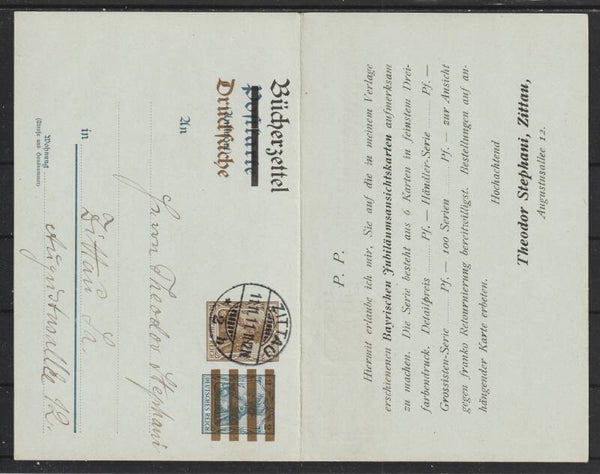 Bücherzettel
Postkarte
Drucksache
An
Herrn Theodor Stephani
in
Zittau Sa.
Wohnung
(Straße und Hausnummer)
Augustusallee 12.
ZITTAU
DEUTSCHES REICH
P. P.
Hiermit erlaube ich mir, Sie auf die in meinem Verlage
erschienenen Bayrischen Jubiläumsansichtskarten aufmerksam
zu machen. Die Serie besteht aus 6 Karten in feinstem Drei-
farbendruck. Detailpreis Pf. — Händler-Serie Pf. —
Grossisten-Serie Pf. — 100 Serien Pf. — zur Ansicht
gegen franko Retournierung bereitwilligst. Bestellungen auf an-
hängender Karte erbeten.
Hochachtend
Theodor Stephani, Zittau,
Augustusallee 12.